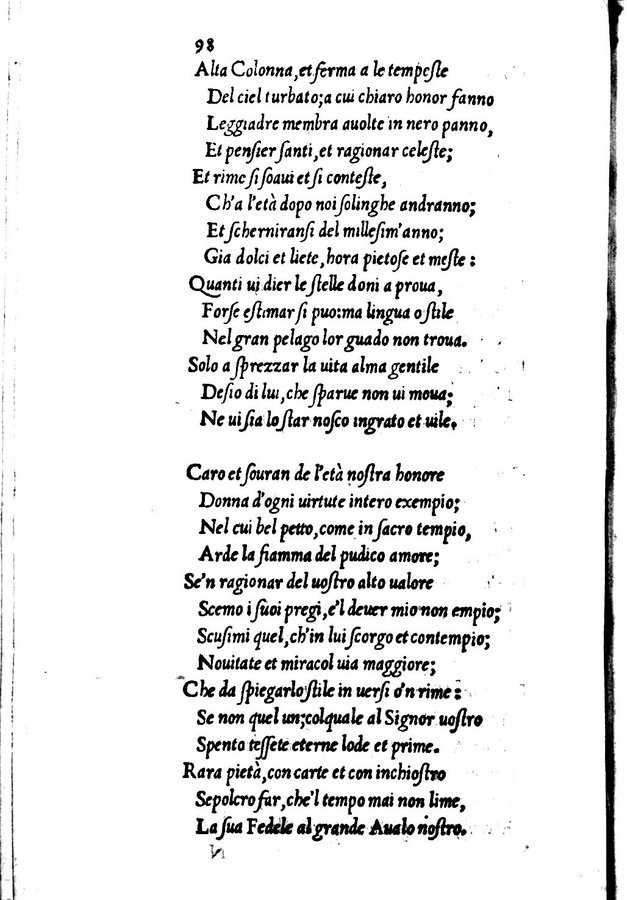 98
Alta Colonna, et ferma a le tempeſte
Del ciel turbato; a cui chiaro honor fanno
Leggiadre membra auolte in nero panno,
Et penſier ſanti, et ragionar celeſte;
Et rime ſi ſoaui et ſi conteſte,
Ch'a l'età dopo noi ſolinghe andranno;
Et ſcherniranſi del milleſim'anno;
Gia dolci et liete, hora pietoſe et meſte :
Quanti ui dier le ſtelle doni a proua,
Forſe eſtimar ſi puo: ma lingua o ſtile
Nel gran pelago lor guado non troua.
Solo a ſprezzar la uita alma gentile
Deſio di lui, che ſparue non ui moua;
Ne ui ſia lo ſtar noſco ingrato et uile.
Caro et ſouran de l'età noſtra honore
Donna d'ogni uirtute intero exempio;
Nel cui bel petto, come in ſacro tempio,
Arde la fiamma del pudico amore;
Se'n ragionar del uoſtro alto ualore
Scemo i ſuoi pregi, e'l deuer mio non empio;
Scuſimi quel, ch'in lui ſcorgo et contempio;
Nouitate et miracol uia maggiore;
Che da ſpiegarlo ſtile in uerſi o'n rime :
Se non quel un; col quale al Signor uoſtro
Spento teſſete eterne lode et prime.
Rara pietà, con carte et con inchioſtro
Sepolcro far, che'l tempo mai non lime,
La ſua Fedele al grande Aualo noſtro.